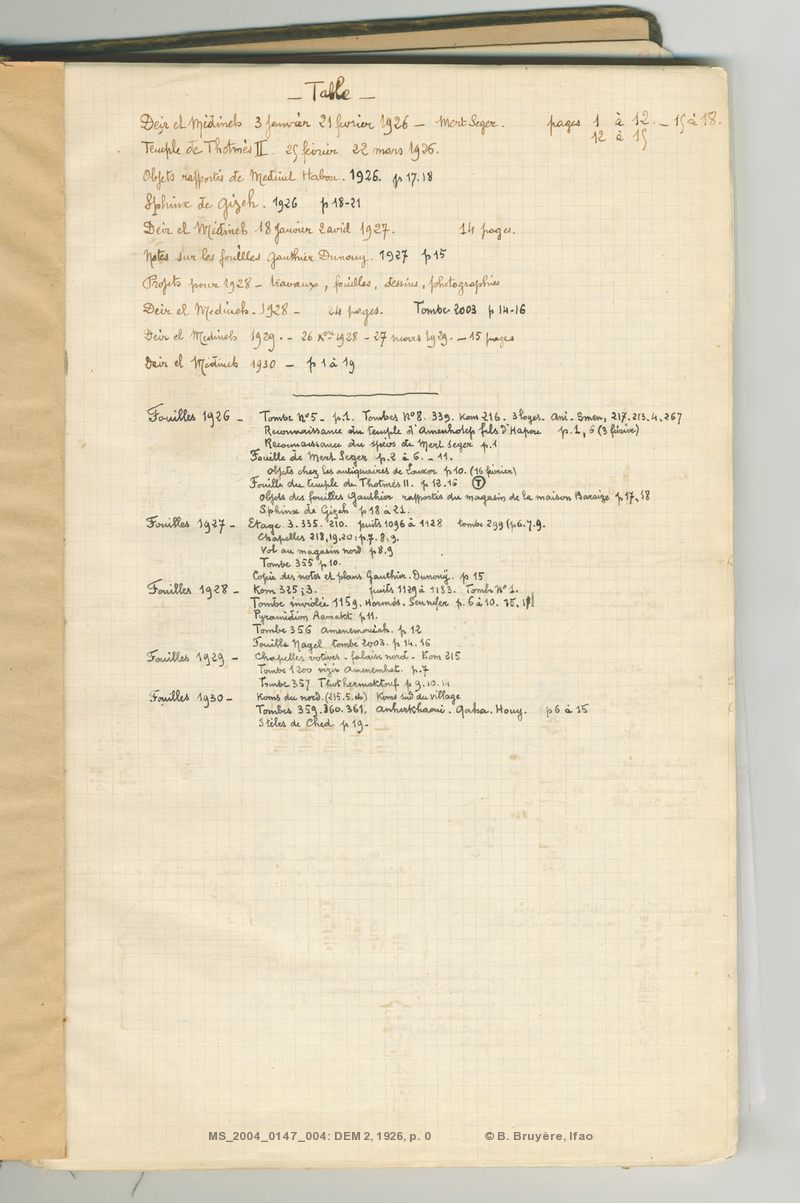 _ Table _
Deir el Médineh 3 Janvier 21 février 1926 _ Mert Seger. pages 1 à 12. _ 15 à 18.
12 à 15
Temple de Thotmès II 25 février 22 mars 1926.
Objets rapportés de Medinet Habou. 1926. p 17.18
Sphinx de Gizeh. 1926 p 18-21
Deir el Médineh 18 Janvier 2 avril 1927. 14 pages.
Notes sur les fouilles Gauthier Dunouy. 1927 p 15
Projets pour 1928 - travaux, fouilles, dessins, photographies
Deir el Medineh. 1928 - 24 pages. Tombe 2003 p 14-16
Deir el Medineh 1929. - 26 Xbre 1928 - 27 mars 1929. - 15 pages
Deir el Médineh 1930 - p 1 à 19
Fouilles 1926 - Tombe N°5 - p.1. Tombes N°8. 339. Kom 216. 3 loges. Ani. Smen, 217.213.4.267
Reconnaissance du temple d'Amenhotep fils d'Hapou p.1, 6 (3 février)
Reconnaissance du spéos de Mert Seger p.1
Fouille de Mert Seger p.2 à 6. - 11.
Objets chez les antiquaires de Louxor p 10. (16 février)
Fouille du temple de Thotmès II. p 12.16 T
Objets des fouilles Gauthier rapportés du magasin de la maison Baraize p.17,18
Sphinx de Gizeh p 18 à 21.
Fouilles 1927 - Etage 3.335.210. puits 1096 à 1128 tombe 299 (p6.7.9.
Chapelles 218,19.20: p.7. 8.9.
Vol au magasin nord. p 8.9
Tombe 355 p 10.
Copie des notes et plans Gauthier. Dunouy. p 15
Fouilles 1928 - Kom 325;3. puits 1129 à 1183. Tombe N°1.
Tombe inviolée 1159. Hormès. Sennefer p. 6 à 10.
Pyramidion Aamakt p 11.
Tombe 356 Amenemouiah. p 12
Fouille Nagel tombe 2003. p 14.16
Fouilles 1929 - Chapelles votives - falaise nord - Kom 215
Tombe 1200 vizir Amenemhat. p.7
Tombe 357 Thothermaktouf p 9.10.14
Fouilles 1930 - Koms du nord. (215.5. etc) Koms sud du village
Tombes 359.360.361. Anherkhaoui. Qaha. Houy. p 6 à 15
Stèles de Ched p 19-
MS_2004_0147_004: DEM 2, 1926, p. 0 © B. Bruyère, Ifao